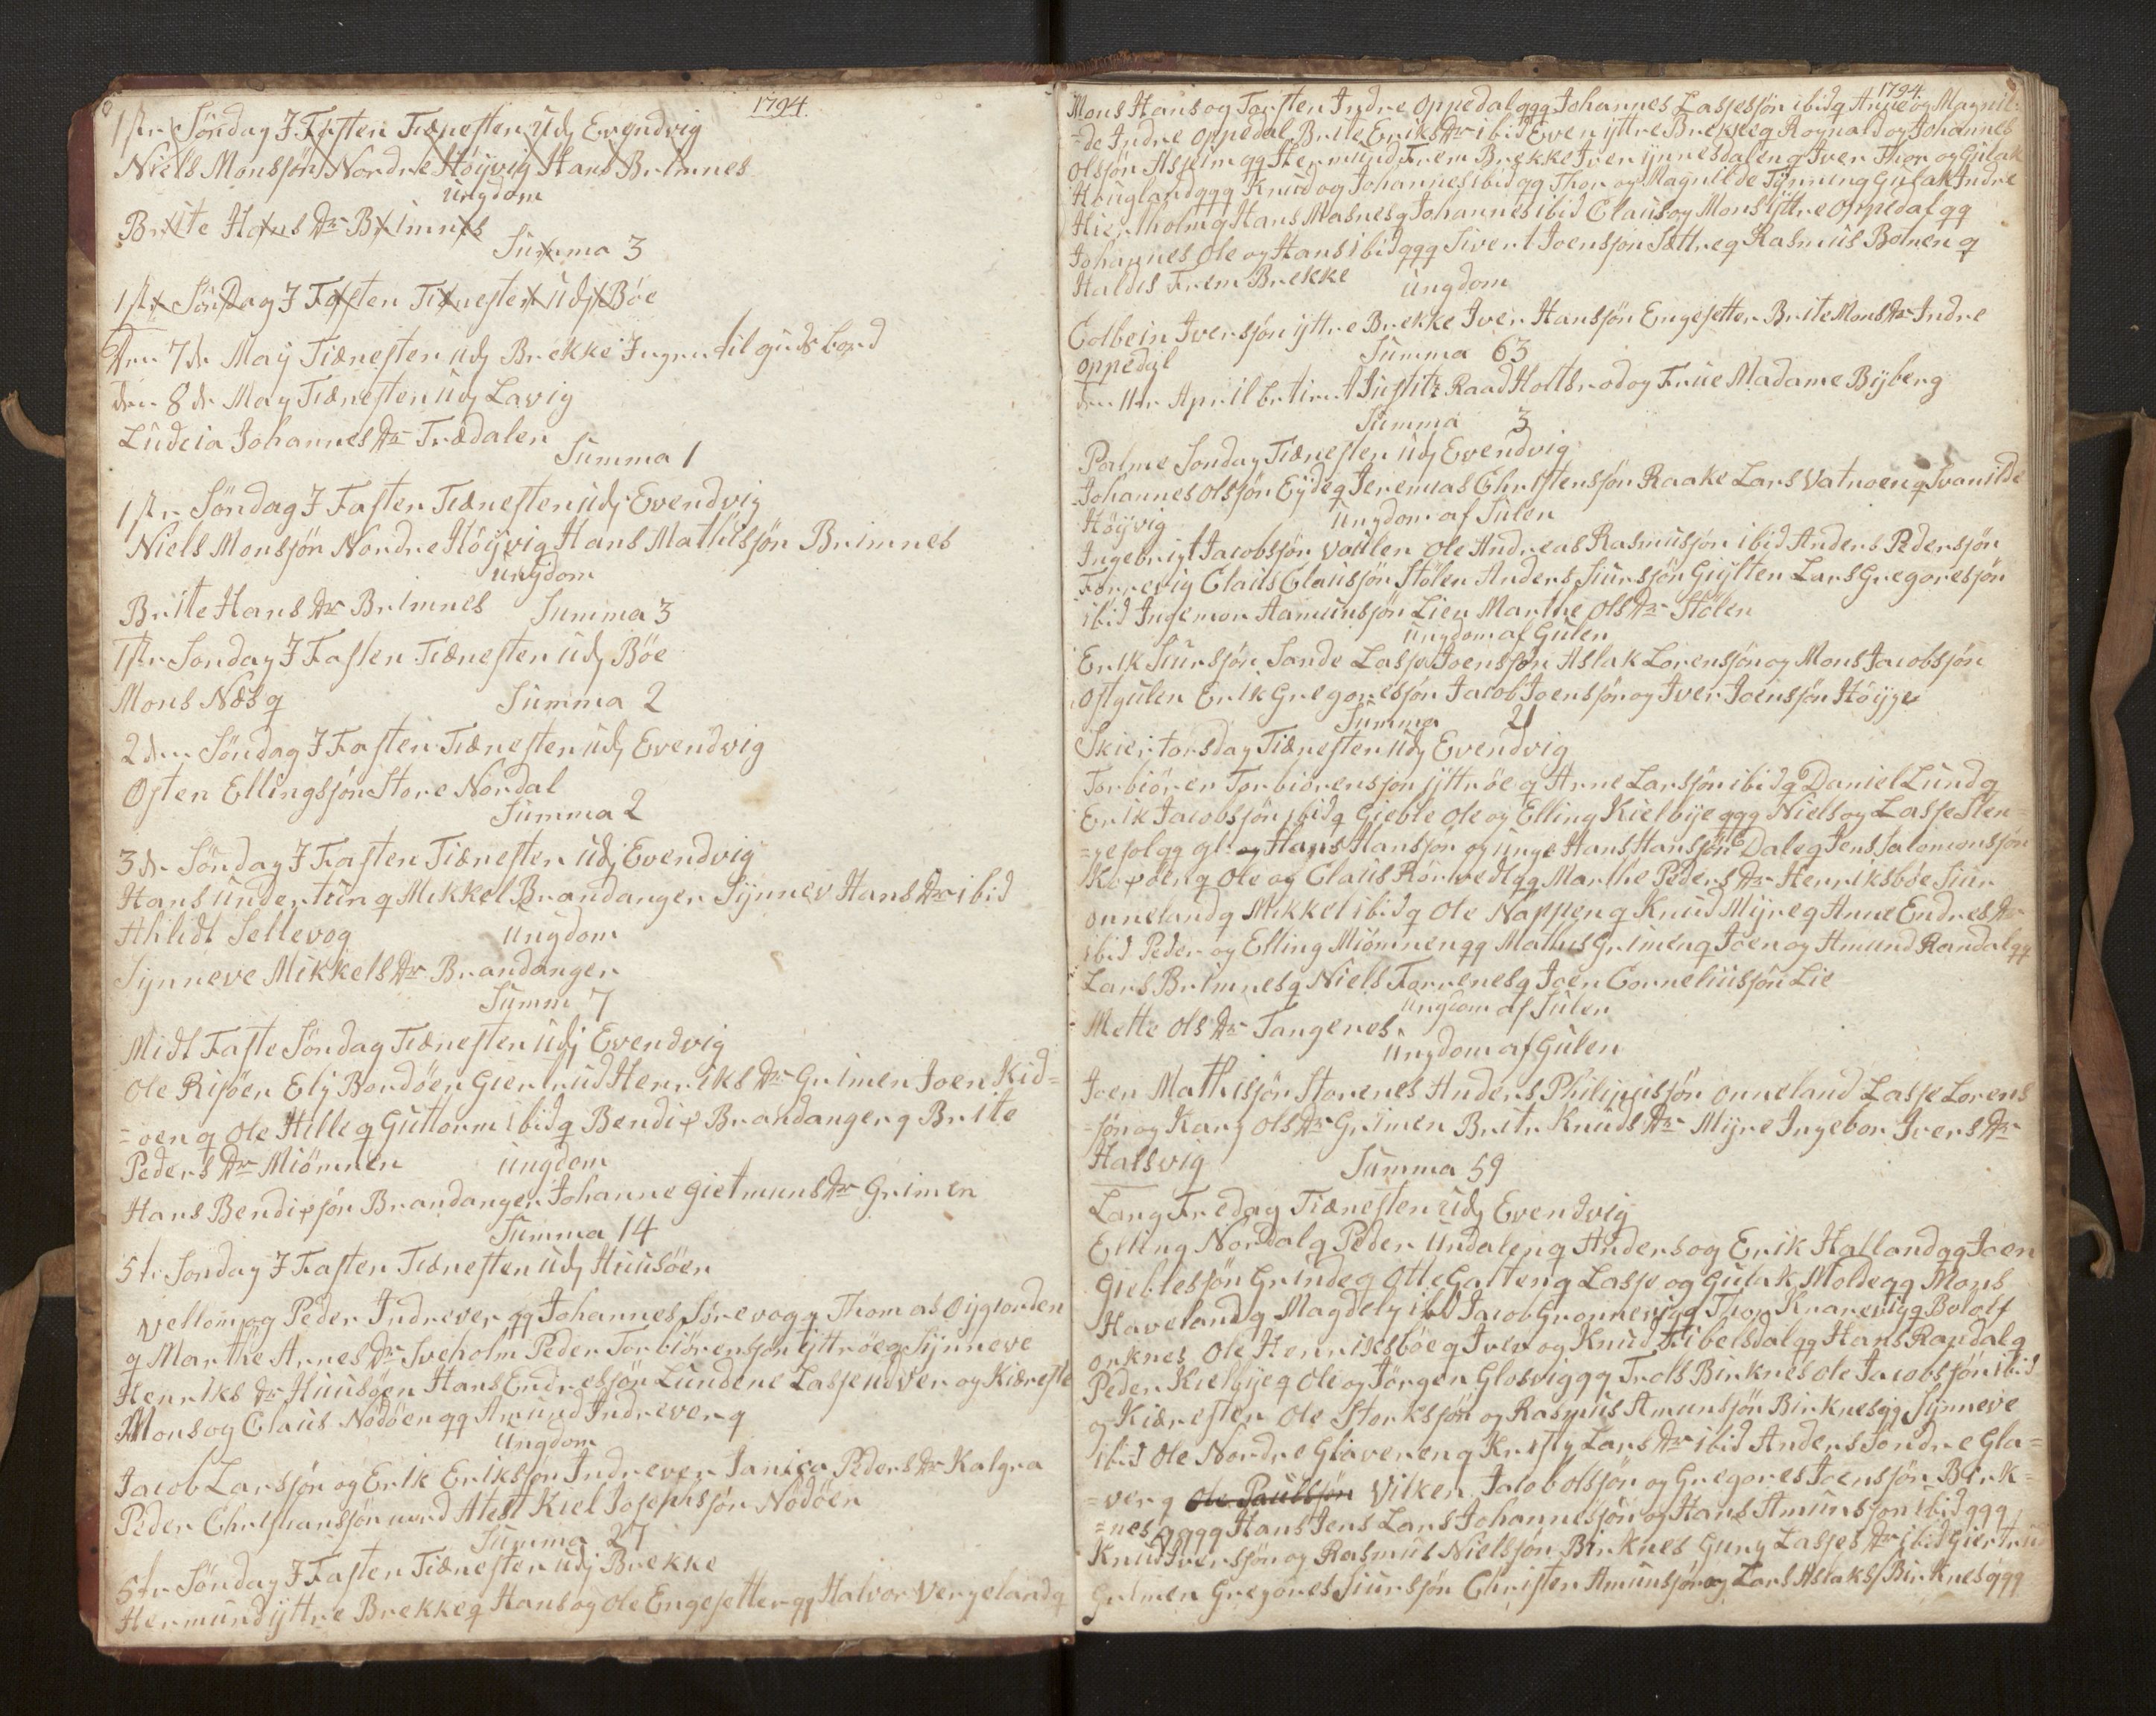 1794.
1ste Söndag I Fasten Tiænesten udj Evendvig
Niels Monssjön Nordre Höÿvig Hans Brimnes
ungdom
Brite Hans Dr Brimnes
Summa 3
1ste Söndag I Fasten Tiænesten udj Böe
Den 7de Maÿ Tiænesten udj Brekke Ingen til guds bord
den 8de May Tiænesten udj Lavig
Ludcia Johannes Dr Trædalen
Summa 1
1ste Söndag I Fasten Tienesten udj Evendvig
Niels Monssjön Nordre Höÿvig Hans Mathissjön Brimnes
ungdom
Brite Hans Dr Brimnes Summa 3
1ste Söndag I Fasten Tiænesten udj Böe
Mons Næs q Summa 2
2den Söndag I Fasten Tiænesten udj Evendvig
Osten Ellingsjön Store Nordal
Summa 2
3de Söndag I Fasten Tiænesten udj Evendvig
Hans undertun q Mikkel Brandanger Sÿnnev Hans Dr ibid
Ahlidt Sellevog ungdom
Sÿnneve Mikkels Dr Brandanger
Summ 7
Midt Faste Söndag Tiænesten udj Evendvig
Ole Risöen Elj Bordöen Giertrud Henriks Dr Grimen Joen Kid=
=oen q Ole Hille q Guttorm ibid q Bendix Brandanger q Brite
Peders Dr Miömnen ungdom
Hans Bendixsjön Brandanger Johanne Gietmuns Dr Grimen
Summa 14
5te Söndag I Fasten Tiænesten udj Huusöen
Vellom og Peder Indrever qq Johannes Isrevog q Thomas Oijgorden
q Marthe Arnes Dr Sveholm Peder Torbiörensjön ÿttröe q Sÿnneve
Henriks Dr Huusöen Hans Endresjön Lundene Lasse udver og Kiæreste
Mons og Claus Nodöen qq Amund Indrever q
Ungdom
Jacob Larsjön og Erik Eriksjön Indrever Janica Peders Dr Kalgra
Peder Christiansjön med Atest Kiel Josephsjön Nodöen
Summa 27
5te Söndag I Fasten Tiænesten udj Brekke
Hermund ÿttre Brekke q Hans og Ole Engesetter qq Halvor Vergeland q
1794.
Mons Hans og Torsten Indre Oppedal qqq Johannes Lassesjön ibid q Anne og Magnil=
=de Indre Oppedal Brite Eriks Dr ibid Even ÿttre Brekke q Rognald og Johannes
Olssjön Asheim qq Hermund Frem Brekke Iver ÿnnesdalen q Iver Thor og Gulak
Hougland qqq Knud og Johannes ibid qq Thor og Magnilde Tÿnning Gulak Indre
Hiertholm q Hans Masnes q Johannes ibid Claus og Mons ÿttre Oppedal qq
Johannes Ole og Hans ibid qqq Sivert Joensjön Sættre q Rasmus Botnen q
Haldis Frem Brekke ungdom
Colbein Iversjön ÿttre Brekke Iver Hansjön Engesetter Brite Mons Dr Indre
Oppedal Summa 63
den 11te April betient Justitz Raad Holtbrod og Frue Madame Bÿberg
Summa 3
Palme Söndag Tiænesten udj Evendvig
Johannes Olssjön Eÿde q Jeremias Christensjön Raake Lars Vatnoen q Svanilde
Höÿvig ungdom af Sulen
Ingebrigt Jacobsjön Vaulen Ole Andreas Rasmusjön ibid Anders Pedersjön
Færrevig Claus Clausjön Stolen Anders Siursjön Gÿlten Lars Gregoresjön
ibid Ingemor Aamunsjön Lien Marthe Ols Dr Stölen
ungdom af Gulen
Erik Siursjön Sande Lasse Joensjön Aslak Lorensjön og Mons Jacobsjön
Ostgulen Erik Gregoresjön Jacob Joensjön og Iver Joensjön Höÿge
Summa 21
Skier torsdag Tiænesten udj Evendvig
Torbiören Torbiörensjön ÿttröe q Arne Larsjön ibid q Daniel Lund q
Erik Jacobsjön ibid q Gieble Ole og Elling Kielbÿe qqq Niels og Lasse Sten=
=gesol qq gl. og Hans Hansjön og unge Hans Hansjön Dale q Jens Salomonsjön
Kovöen q Ole og Claus Rörvedt qq Marthe Peders Dr Henriksböe Siur
Onneland q Mikkel ibid q Ole Nappen q Knud Mÿre q Anne Endres Dr
ibid Peder og Elling Miömnen qq Mathis Grimen q Joen og Amund Randal qq
Lars Brimnes q Niels Forrenes q Joen Corneliusjön Lie
ungdom af Sulen
Mette Ols Dr Tangenes
ungdom af Gulen
Joen Mathisjön Storenes Anders Philipusjön Onneland Lasse Lorens
=sjön og Karj Ols Dr Grimen Brite Knuds Dr Mÿre Ingebor Ivers Dr
Halsvig Summa 59
Lang Fredag Tiænesten udj Evendvig
Elling Nordal q Peder Undalen q Anders og Erik Halland qq Joen
Gieblesjön Grinde q Otte Galten q Lasse og Gulak Molde qq Mons
Haveland q Magdely ibid Jacob Gronnevig q Thor Knarevig q Bololf
Orknes Ole Henriksböe q Iver og Knud Kibelsdal qq Hans Randal q
Peder Kielbÿe q Ole og Jörgen Glosvig qq Trols Birknes Ole Jacobsjön ibid
og Kiæresten Ole Storksjön og Rasmus Amunsjön Birknes qq Sÿnneve
ibid Ole Nordre Glaveren q Kristj Lars Dr ibid Anders Söndre Gla=
=ver q Ole Paulssjön Vilken Jacob Olssjön og Gregores Joensjön Birk=
=nes qqqq Hans Jens Lars Johannesjön og Hans Amunsjon ibid qqq
Knud Iversjön og Rasmus Nielsjön Birknes Gurj Lasses Dr ibid Giertru
Grimen Gregores Siursjön Christen Amunsjön og Lars Aslaks Birknes qqq